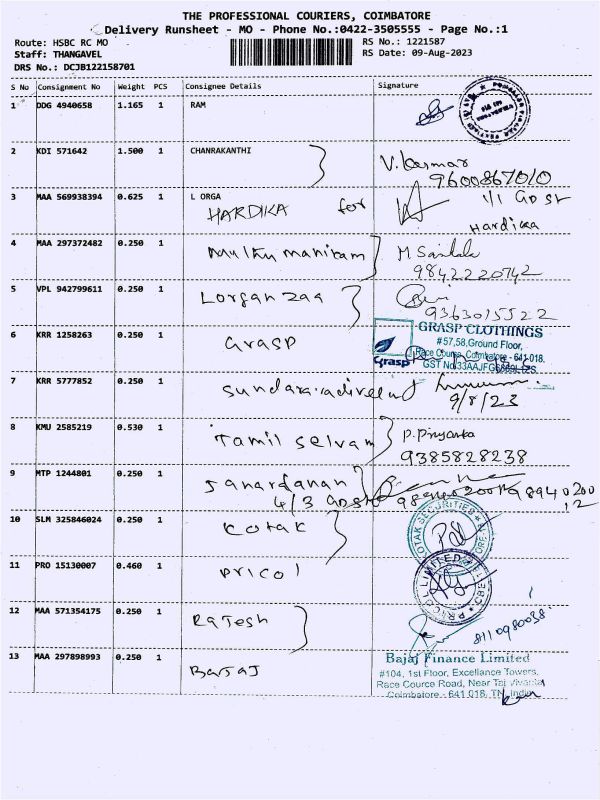 THE PROFESSIONAL COURIERS, COIMBATORE
Delivery Runsheet - MO - Phone No.:0422-3505555 - Page No.:1
Route: HSBC RC MO RS No.: 1221587
Staff: THANGAVEL RS Date: 09-Aug-2023
DRS No.: DCJB122158701
S No Consignment No Weight PCS Consignee Details Signature
1 DDG 4940658 1.165 1 RAM
2 KDI 571642 1.500 1 CHANRAKANTHI V. Kumar
9600867010
3 MAA 569938394 0.625 1 L ORGA 1/1 GD St
HARDIKA for Hardika
4 MAA 297372482 0.250 1 Muthu manikam M
9842220742
5 VPL 942799611 0.250 1 Lorgan zaa
9363015522
6 KRR 1258263 0.250 1 Grasp GRASP CLOTHINGS
#57,58,Ground Floor,
Race Course, Coimbatore - 641 018.
Grasp GST No:
7 KRR 5777852 0.250 1
9/8/23
8 KMU 2585219 0.530 1 Tamil Selvam P. Priyanka
9385828238
9 MTP 1244801 0.250 1 Janardanan
4/3
10 SLM 325846024 0.250 1 Kotak
KOTAK SECURITIES
11 PRO 15130007 0.460 1 Pricol
PRICOL LIMITED
12 MAA 571354175 0.250 1 Rajesh 8110980038
13 MAA 297898993 0.250 1 Bajaj Bajaj Finance Limited
#104, 1st Floor, Excellance Towers,
Race Cource Road, Near Taj Vivanta
Coimbatore - 641 018, TN, India